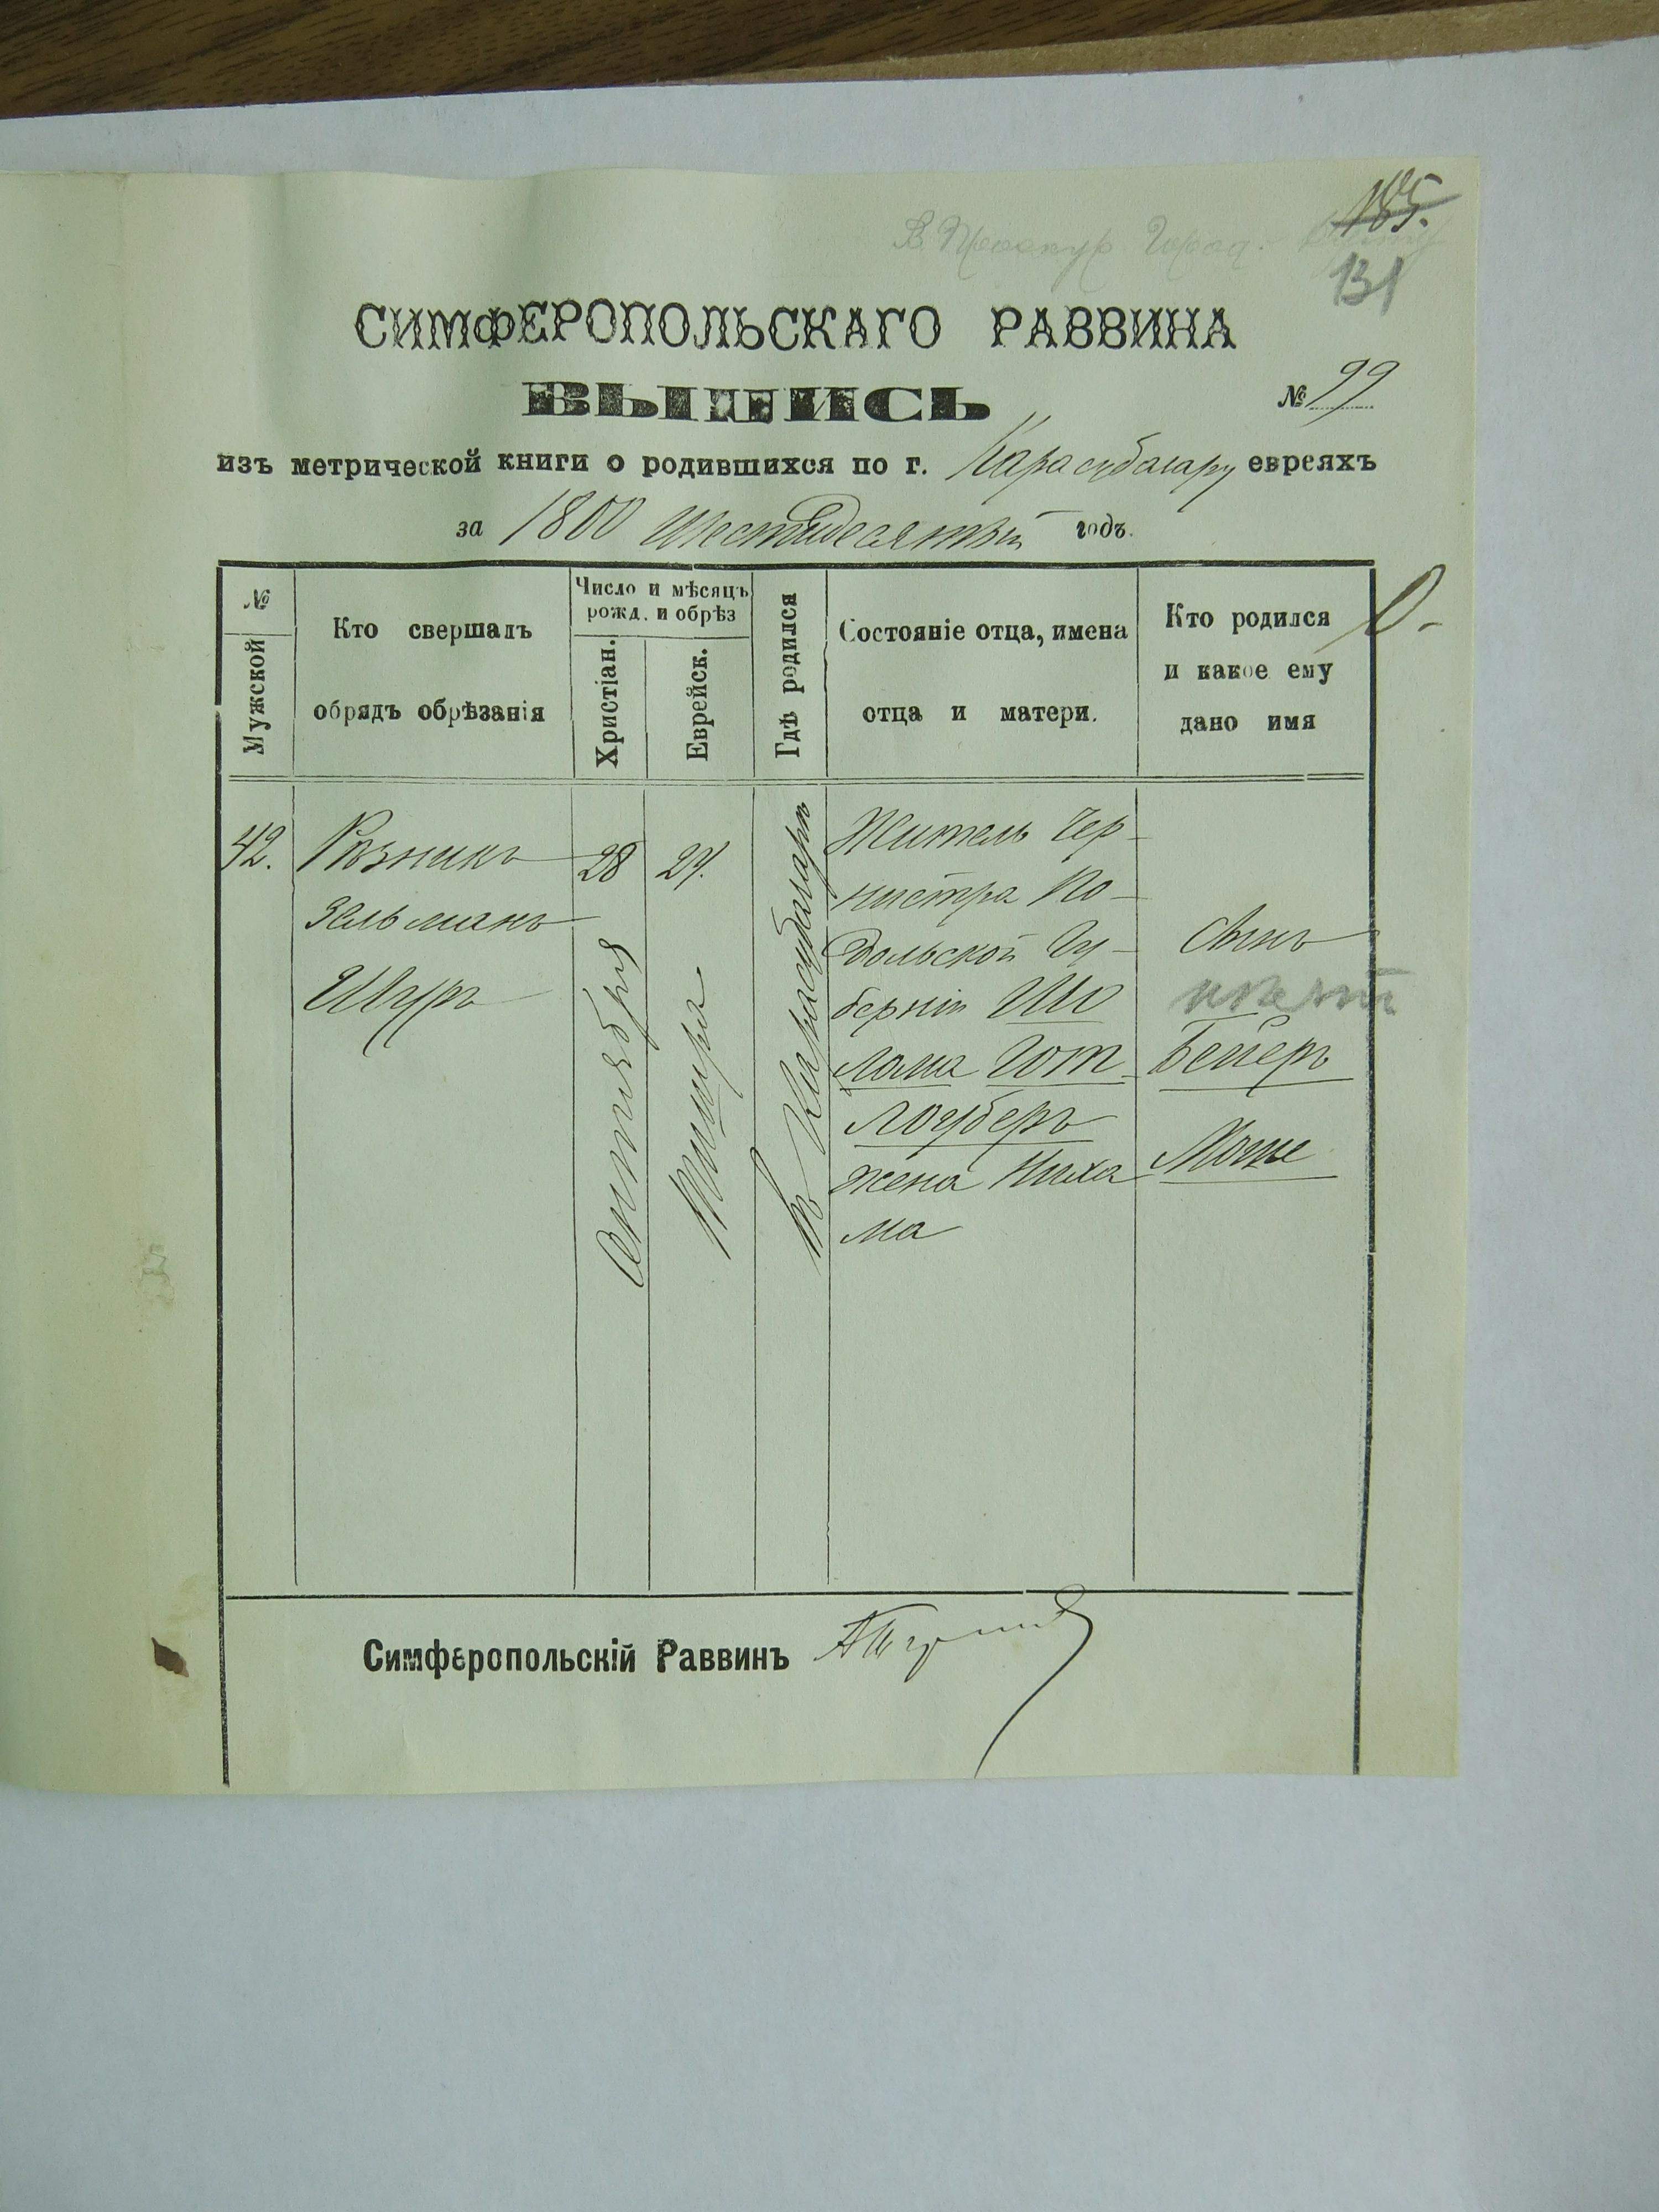 185.
В Проскур. Город.
131
СИМФЕРОПОЛЬСКАГО РАВВИНА
ВЫПИСЬ
№ 99
изъ метрической книги о родившихся по г. Карасубазару евреяхъ
за 1800 Шестидесятый годъ.
№
Мужской
Кто свершалъ
обрядъ обрѣзанія
Число и мѣсяцъ
рожд. и обрѣз
Христіан.
Еврейск.
Гдѣ родился
Состояніе отца, имена
отца и матери.
Кто родился
и какое ему
дано имя
42.
Рѣзникъ
Зельманъ
Шуръ
28
Октября
24.
Тишра
въ Карасубазарѣ
Житель Чер-
нистра По-
дольской Гу-
берніи Шо
лома Гот-
лоуберъ
жена Ниха
ма
Сынъ
Беперъ
Моше
Симферопольскій Раввинъ